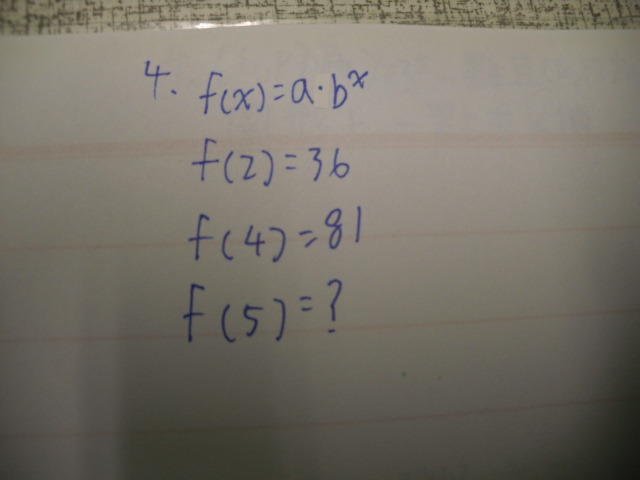 4. f(x)=a·b^x
f(2)=36
f(4)=81
f(5)=?